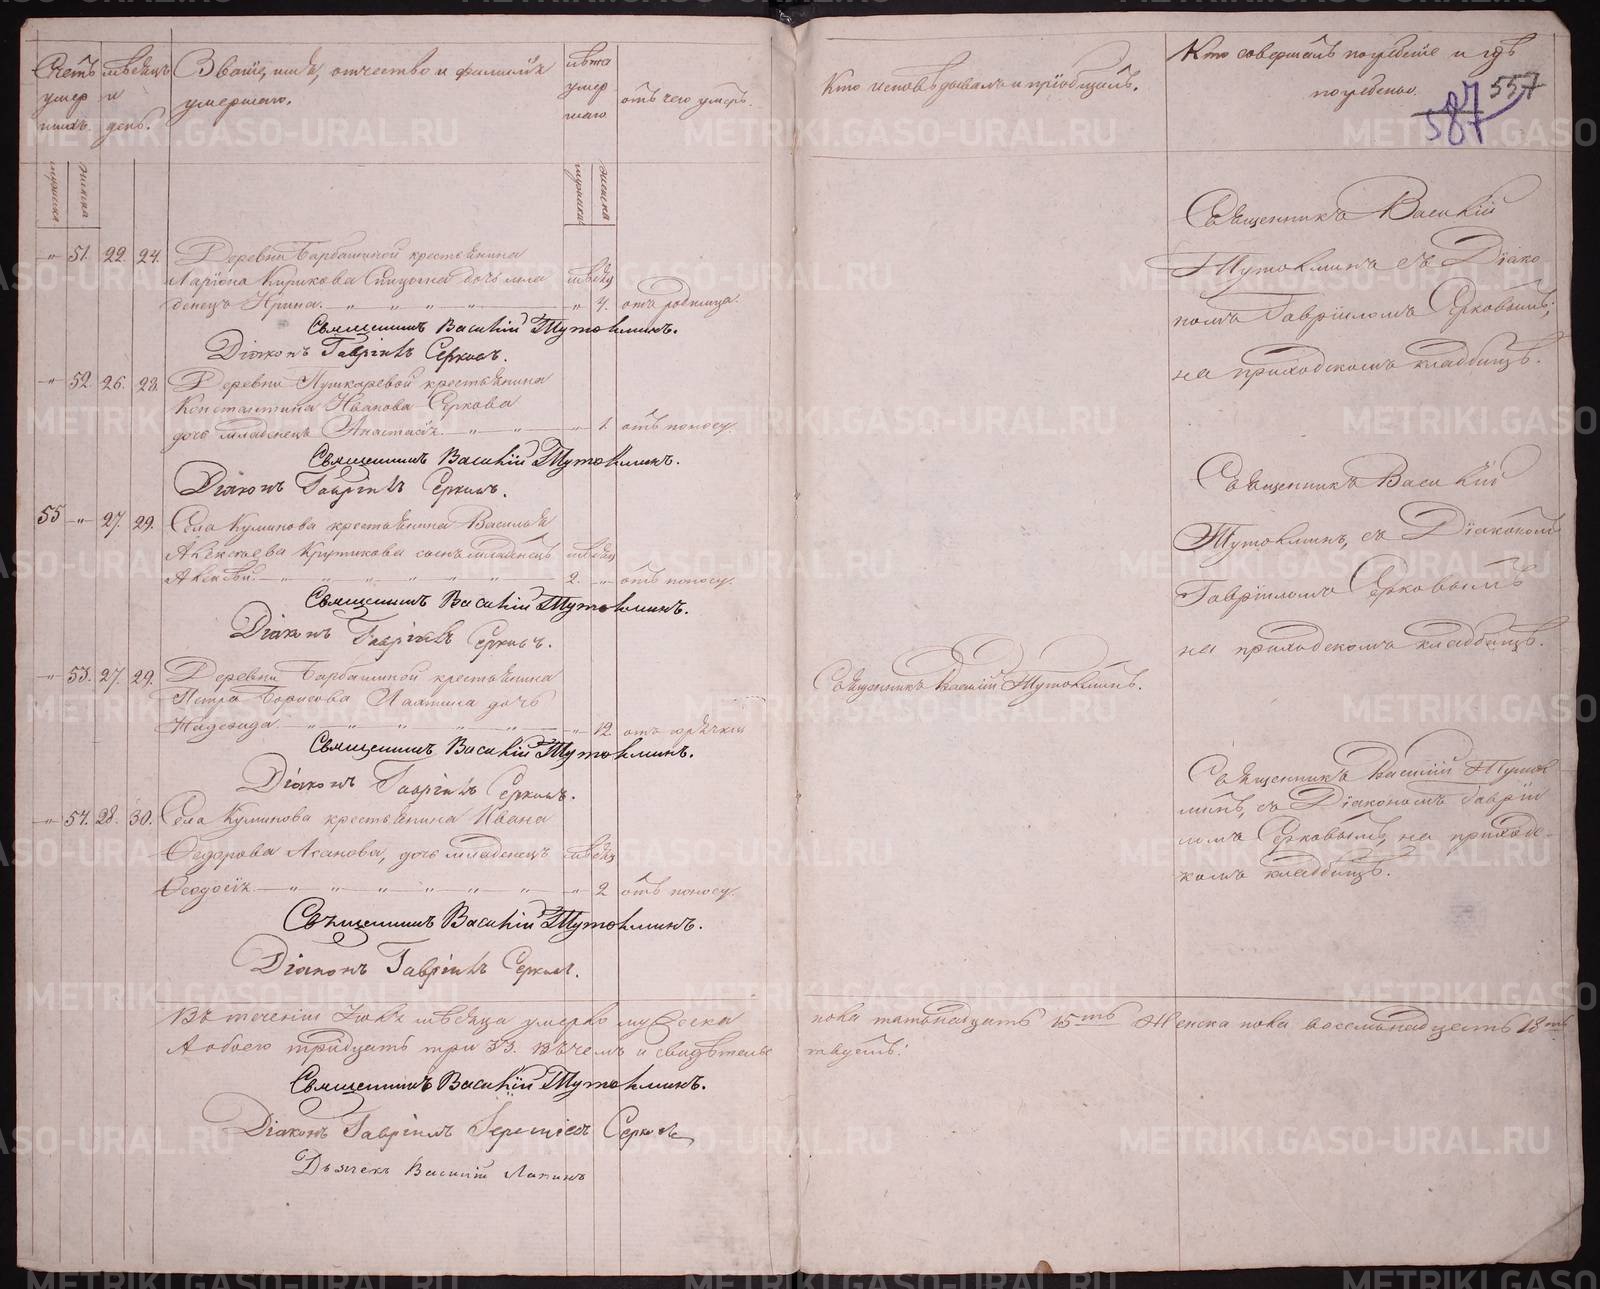 Счетъ умершихъ.
мужска
женска
мѣсяцъ и день.
Званіе, имя, отчество и фамилія умершаго.
лѣта умершаго
мужска
женска
отъ чего умеръ.
Кто исповѣдывалъ и пріобщалъ.
Кто совершалъ погребеніе и гдѣ погребены.
557
587
51. 22. 24. Деревни Барбашиной крестьянина
Ларіона Кирикова дочь мла мѣсяц
денецъ Ирина. 4. отъ родимца
Священникъ Василій Тутолминъ.
Діаконъ Гавріилъ Серковъ.
52. 26. 28. Деревни Пушкаревой крестьянина
Константина Иванова Серкова
дочь младенецъ Анастасія. 1. отъ поносу.
Священникъ Василій Тутолминъ.
Діаконъ Гавріилъ Серковъ.
55 27. 29. Села Куминова крестьянина Василья
Алексѣева Крутикова сынъ младенецъ мѣсяц
Алексѣй. 2. отъ поносу.
Священникъ Василій Тутолминъ.
Діаконъ Гавріилъ Серковъ.
53. 27. 29. Деревни Барбашиной крестьянина
Петра Борисова Лаптина дочь
Надежда. 12. отъ горячки
Священникъ Василій Тутолминъ.
Діаконъ Гавріилъ Серковъ.
54. 28. 30. Села Куминова крестьянина Ивана
Ѳедорова Асанова, дочь младенецъ мѣсяц
Ѳеодосія. 2 отъ поносу.
Священникъ Василій Тутолминъ.
Діаконъ Гавріилъ Серковъ.
Священникъ Василій Тутолминъ.
Священникъ Василій
Тутолминъ съ Діако
номъ Гавріиломъ Серковымъ;
на приходскомъ кладбищѣ.
Священникъ Василій
Тутолминъ, съ Діакономъ
Гавріиломъ Серковымъ
на приходскомъ кладбищѣ.
Священникъ Василій Тутол
минъ, съ Діакономъ Гаврїи
ломъ Серковымъ, на приходс-
комъ кладбищѣ.
Въ теченіи Іюля мѣсяца умерло мужеска пола пятьнадцать 15ть Женска пола восемьнадцать 18ть
А обоего тридцать три 33. Въ чемъ и свидѣтельствуемъ:
Священникъ Василій Тутолминъ.
Діаконъ Гавріилъ Серковъ
Дьячекъ Василій Лапинъ
METRIKI.GASO-URAL.RU